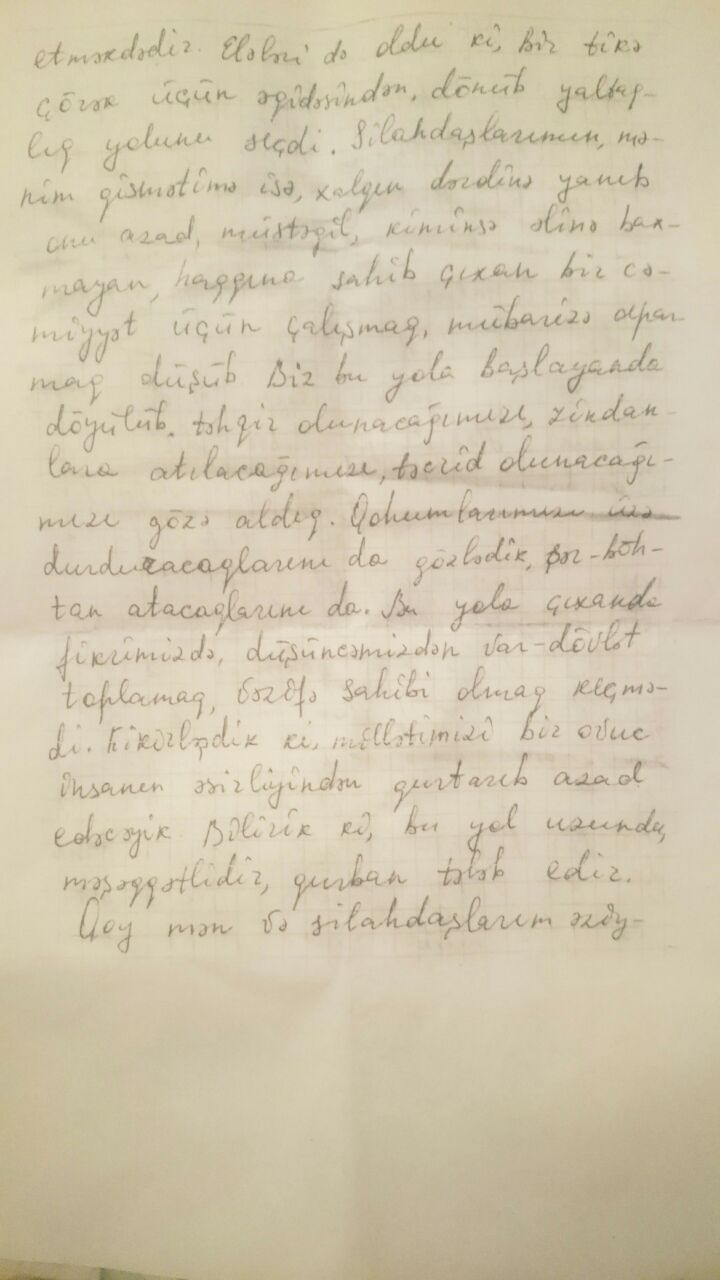 etməkdədir. Elələri də oldu ki, bir tikə
çörək üçün əqidəsindən, dönüb yaltaq-
lıq yolunu seçdi. Silahdaşlarımın, mə-
nim qismətimə isə, xalqın dərdinə yanıb
onu azad, müstəqil, kiminsə əlinə bax-
mayan, haqqına sahib çıxan bir cə-
miyyət üçün çalışmaq, mübarizə apar-
maq düşüb Biz bu yola başlayanda
döyülüb, təhqir olunacağımızı, zindan-
lara atılacağımızı, təcrid olunacağı-
mızı gözə aldıq. Qohumlarımızı üzə
durduzacaqlarını da gözlədik, şər-böh-
tan atacaqlarını da. Bu yola çıxanda
fikrimizdə, düşüncəmizdən var-dövlət
toplamaq, vəzifə sahibi olmaq keçmə-
di. Fikirləşdik ki, millətimizi bir ovuc
insanın əsirliyindən qurtarıb azad
edəcəyik. Bilirik ki, bu yol uzundu,
məşəqqətlidir, qurban tələb edir.
Qoy mən və silahdaşlarım əziy-